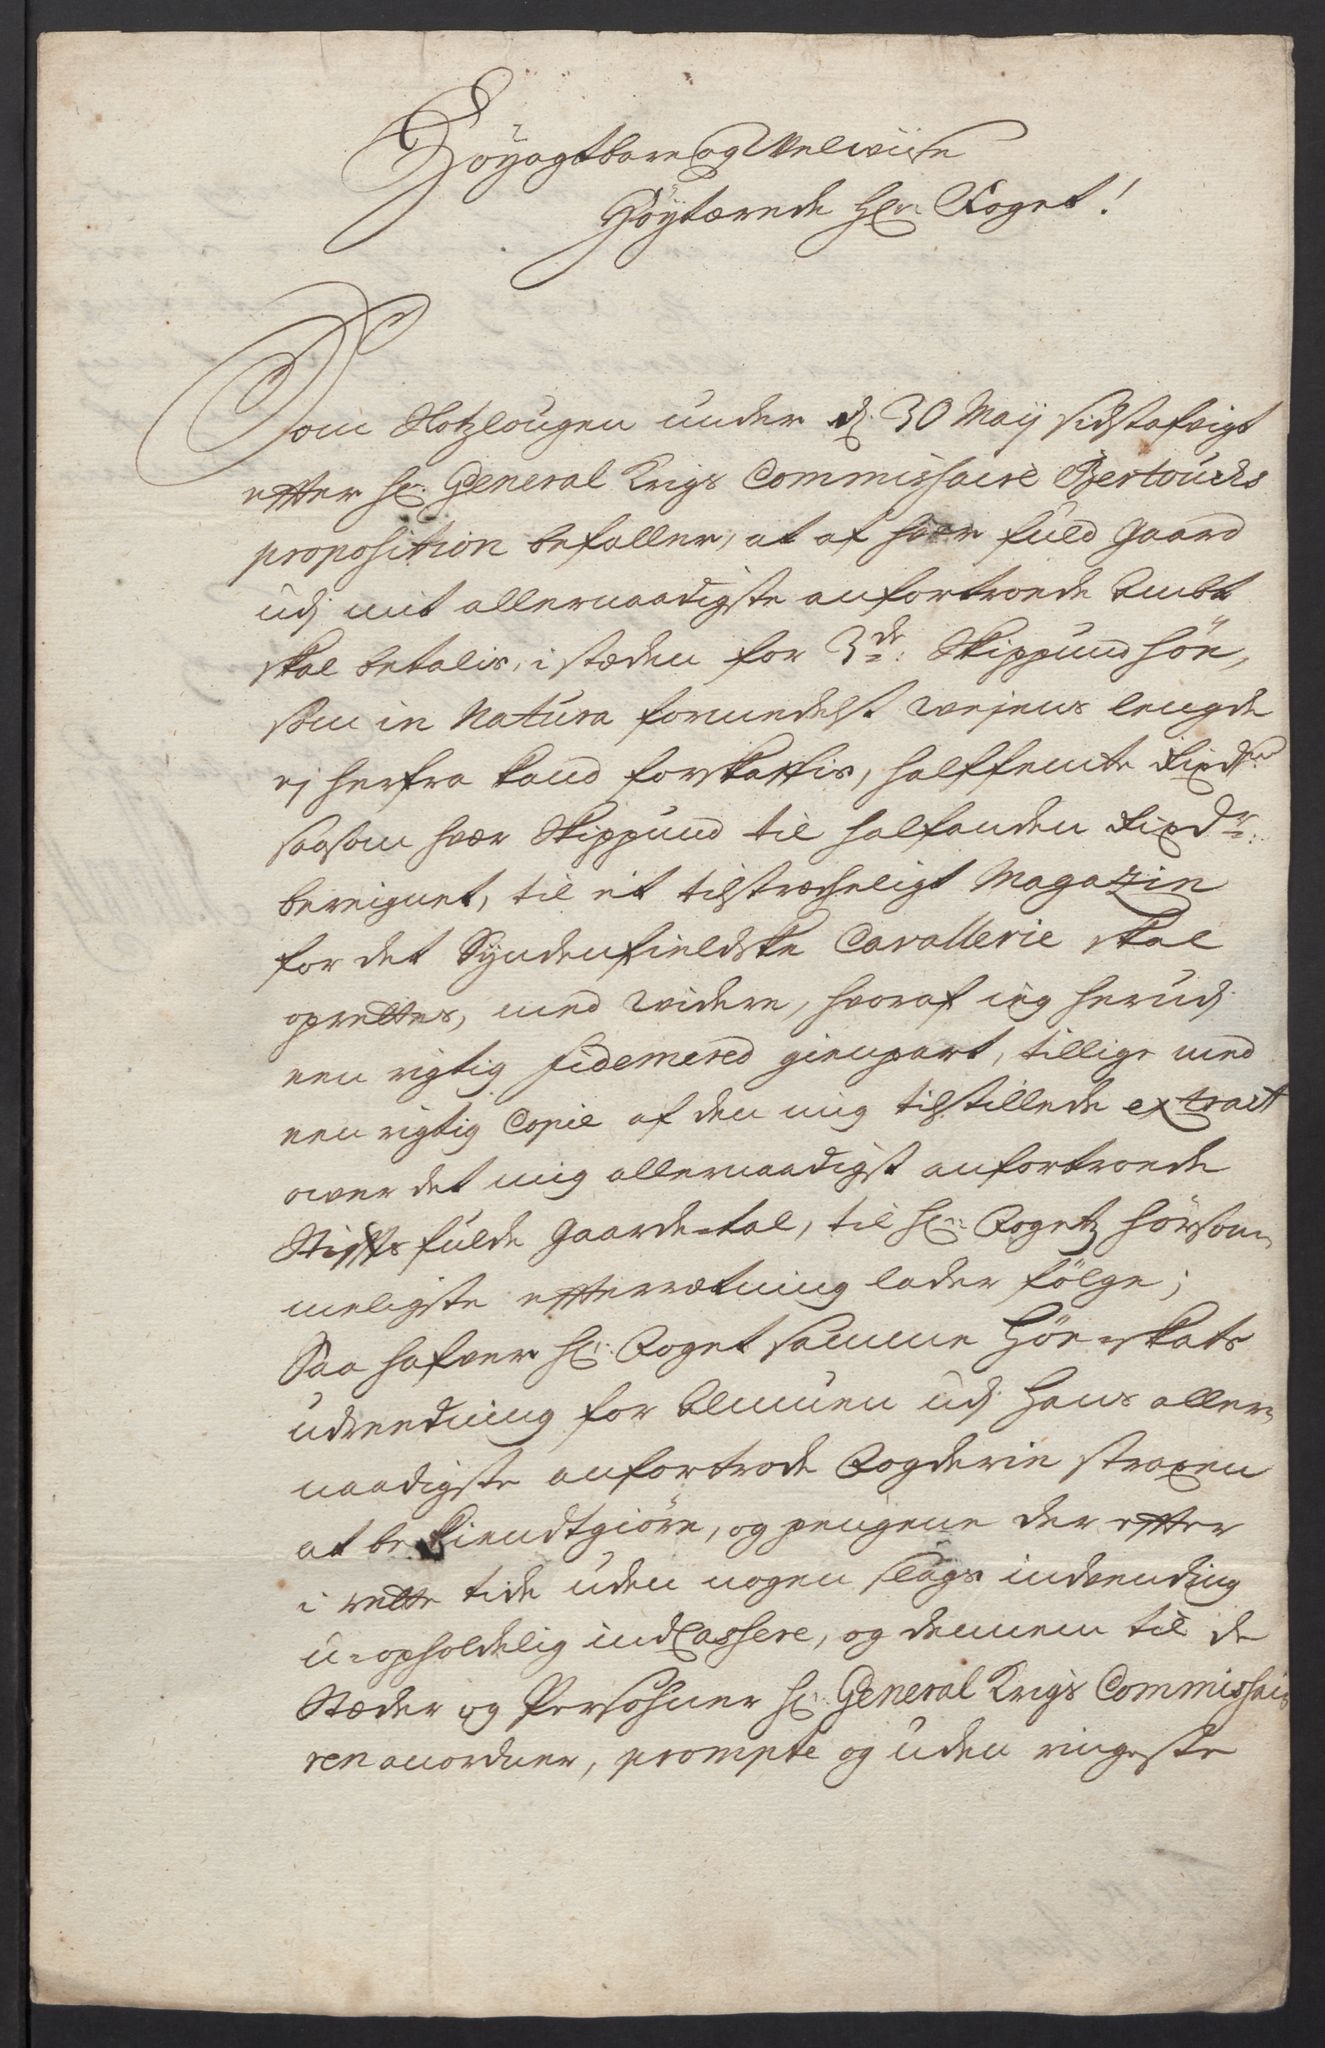 Höyagtbare og Velwiise
Höytærede Hr. Foget!
Som Slotzlougen under d. 30 Maij sidstafvigt
effter Hr. General Krigs Commissaire Bertouchs
proposition befaller, at af hver fuld gaard
udj mit allernaadigste anfortroede Ambt
skal betalis, i stæden for 3de: Skippund höe,
som in Natura formedelst weyens lengde
ej herfra kand forskaffis, halffemte Rixdr.
saasom hver Skippund til halfanden Rixdr:
bereignet, til et tilstrecheligt Magazin
for det Syndenfieldske Cavallerie skal
oprettes, med widere, hvoraf ieg herudj
een rigtig fidemered gienpart, tillige med
een rigtig Copie af den mig tilstillede extract
over det mig allernaadigst anfortroede
Stiffts fulde gaarde-tal, til Hr. Fogetz hörsom-
meligste effterretning lader fölge;
Saa hafver Hr. Foget samme Höe-skats
udreedning for Almuen udj Hans aller-
naadigste anfortrode Fogderie straxen
at bekiendtgiöre, og pengene der effter
i rette tide uden nogen slags indvending
u-opholdelig indCassere, og dennem til de
Stæder og Persohner Hr. General Krigs Commissai-
ren anordner, prompte og uden ringeste